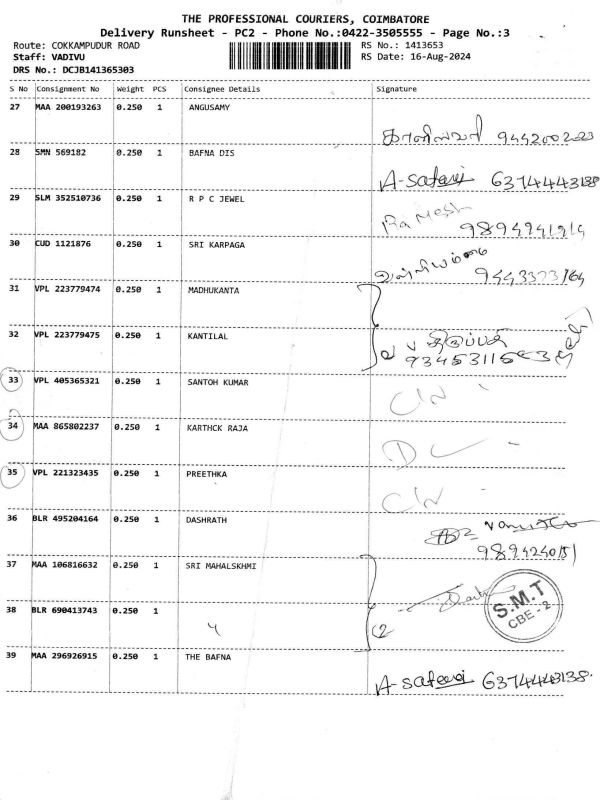 THE PROFESSIONAL COURIERS, COIMBATORE
Delivery Runsheet - PC2 - Phone No.:0422-3505555 - Page No.:3
Route: COKKAMPUDUR ROAD RS No.: 1413653
Staff: VADIVU RS Date: 16-Aug-2024
DRS No.: DCJB141365303
S No Consignment No Weight PCS Consignee Details Signature
27 MAA 200193263 0.250 1 ANGUSAMY
9442002023
28 SMN 569182 0.250 1 BAFNA DIS
6374443138
29 SLM 352510736 0.250 1 R P C JEWEL
Ramesh
30 CUD 1121876 0.250 1 SRI KARPAGA
31 VPL 223779474 0.250 1 MADHUKANTA
32 VPL 223779475 0.250 1 KANTILAL
33 VPL 405365321 0.250 1 SANTOH KUMAR
34 MAA 865802237 0.250 1 KARTHCK RAJA
35 VPL 221323435 0.250 1 PREETHKA
36 BLR 495204164 0.250 1 DASHRATH
37 MAA 106816632 0.250 1 SRI MAHALSKHMI
S.M.T
CBE - 2
38 BLR 690413743 0.250 1
39 MAA 296926915 0.250 1 THE BAFNA
6374443138